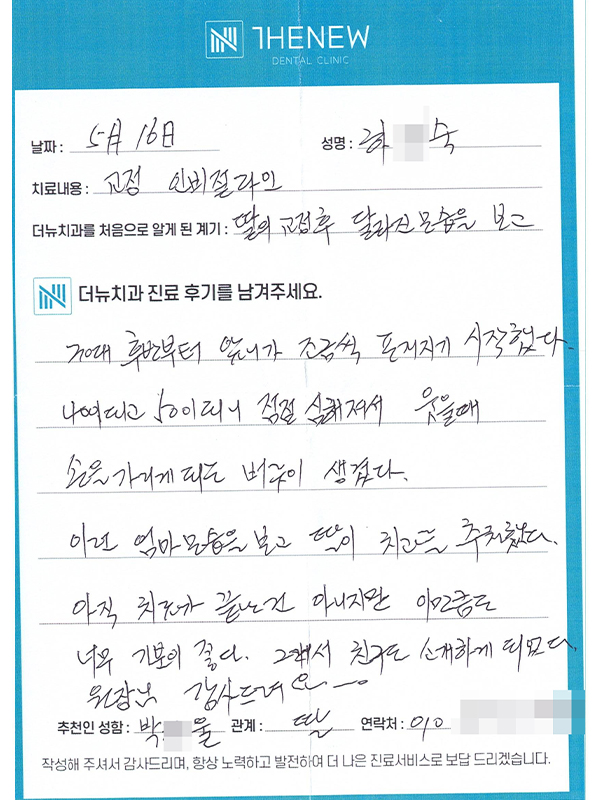 THENEW
DENTAL CLINIC
날짜 : 5月 16日 성명 : 하 숙
치료내용 : 교정 인비절라인
더뉴치과를 처음으로 알게 된 계기 : 딸의 교정후 달라진 모습을 보고
더뉴치과 진료 후기를 남겨주세요.
후반부터 앞니가 조금씩 삐지기 시작했다.
50이 되니 점점 심해져서 웃을때
손을 가리게 되는 버릇이 생겼다.
이런 엄마 모습을 보고 딸이 치료를 추천했다.
아직 치료가 끝난건 아니지만 이만큼도
너무 기분이 좋다. 그래서 친구도 소개하게 되었다.
원장님 감사드려요~
추천인 성함 : 박 율 관계 : 딸 연락처 : 010
작성해 주셔서 감사드리며, 항상 노력하고 발전하여 더 나은 진료서비스로 보답 드리겠습니다.